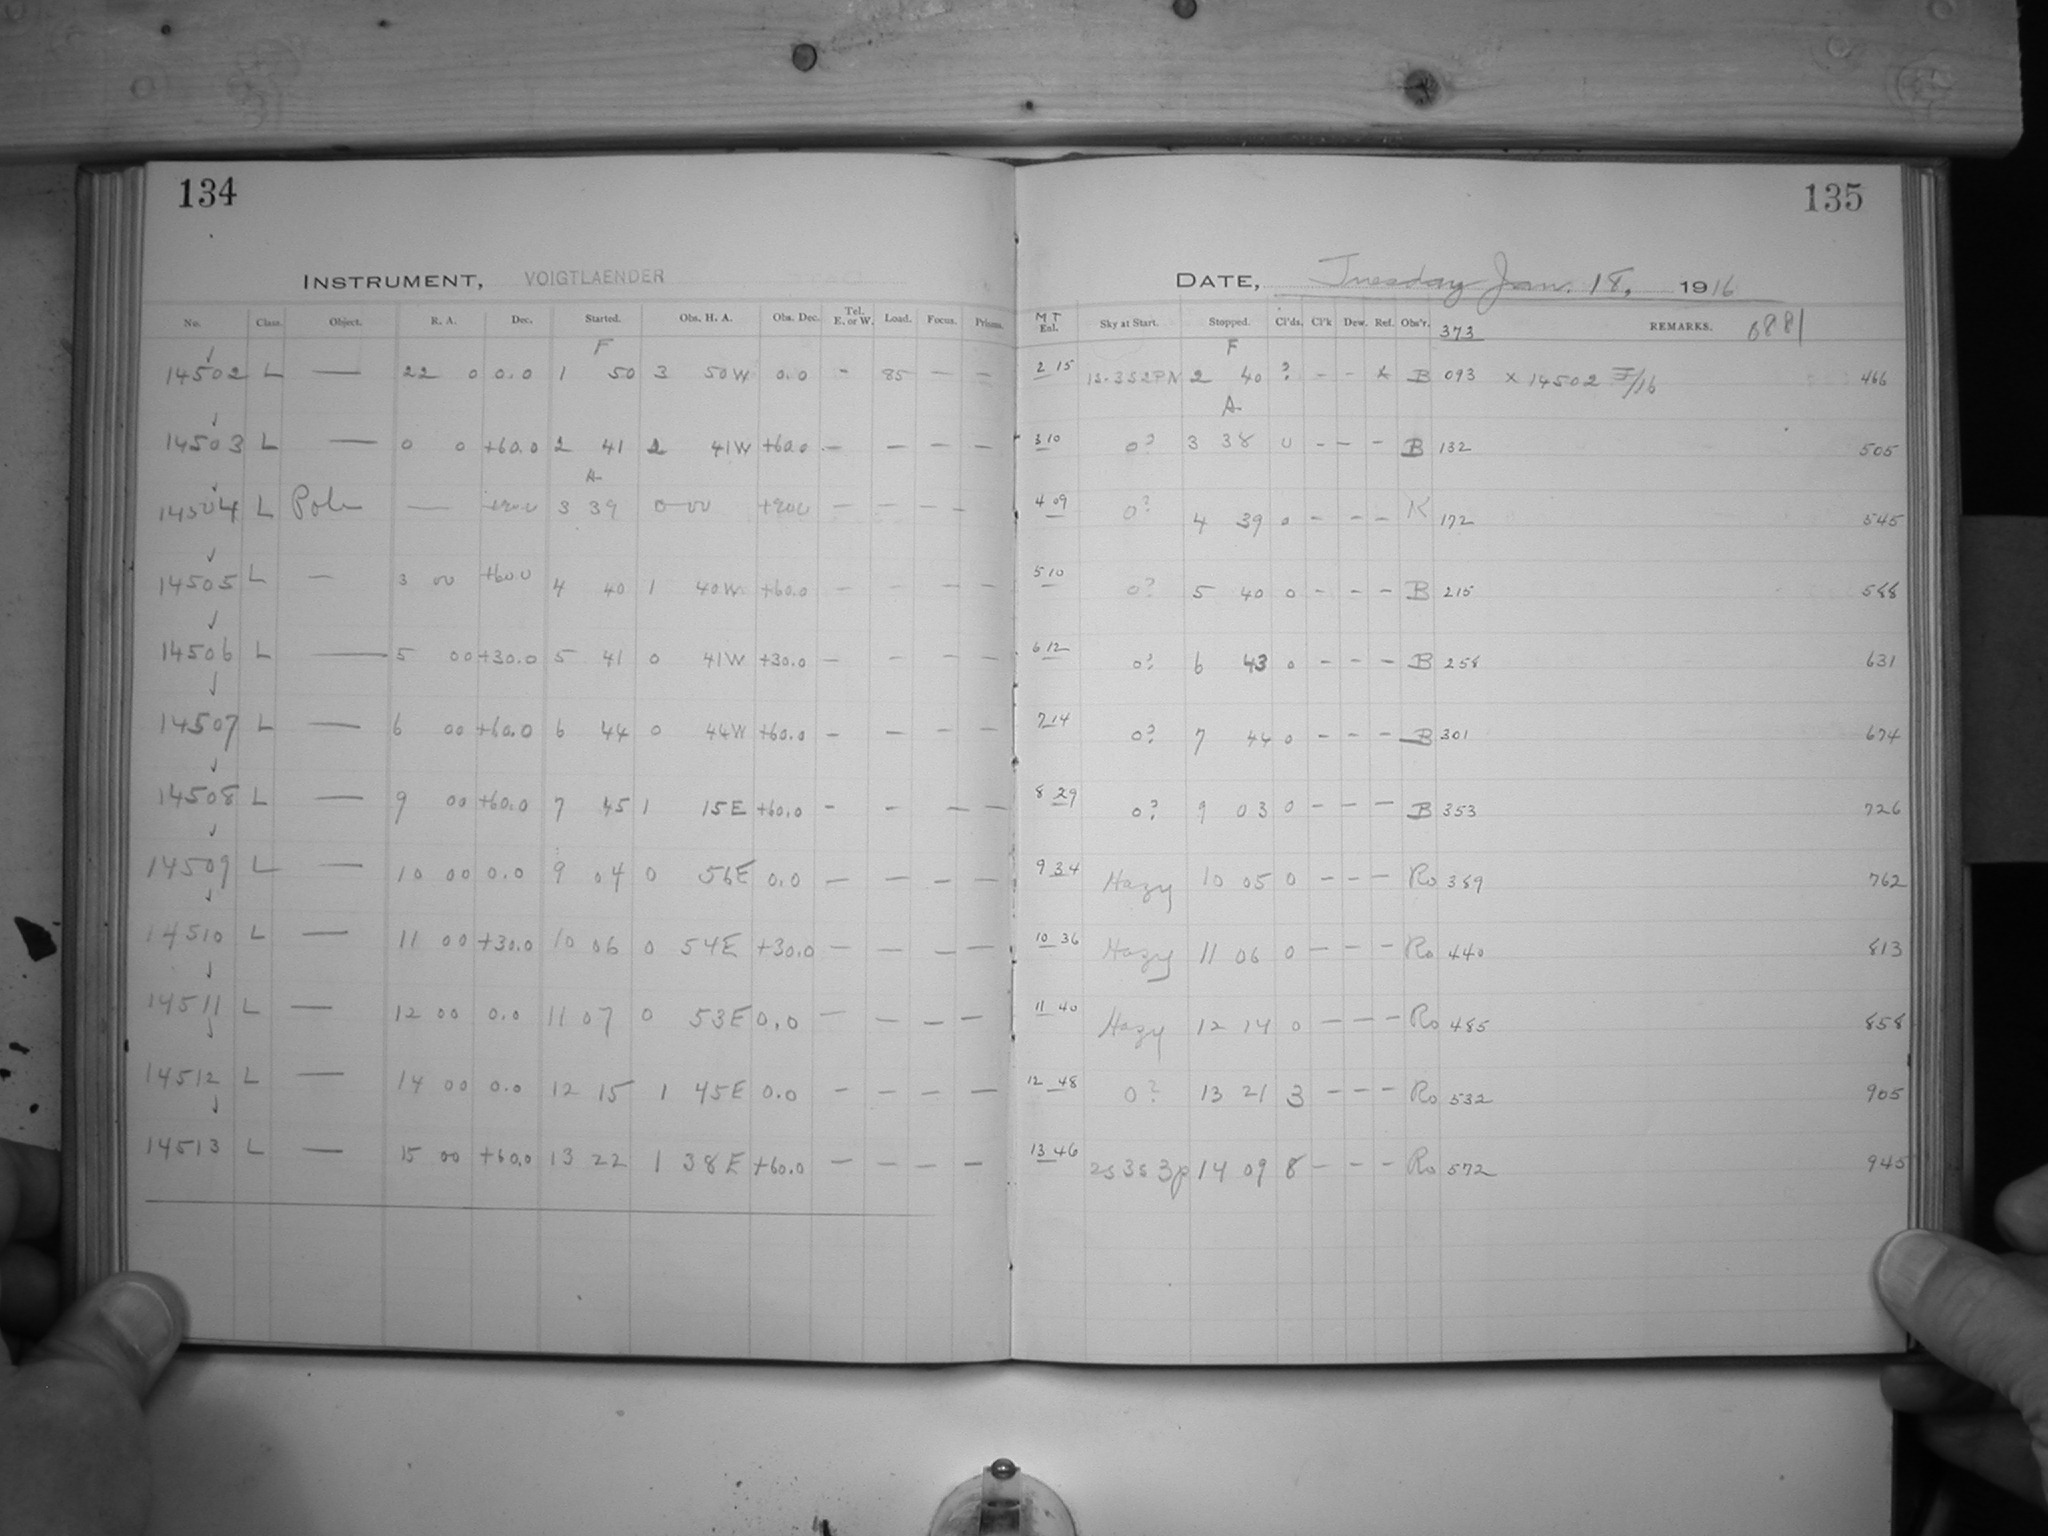 134
135
INSTRUMENT, VOIGTLAENDER
DATE, Tuesday Jan. 18, 1916
No. Class. Object. R. A. Dec. Started. Obs. H. A. Obs. Dec. Tel. E. or W. Load. Focus. Prisms. M T Enl. Sky at Start. Stopped. Cl'ds. Cl'k Dew. Ref. Obs'r. 373 REMARKS. 6881
F F
14502 L — 22 0 0.0 1 50 3 50W 0.0 - 85 — — 2 15 2 40 ? - - x B 093 x 14502 I/16 466
A
14503 L — 0 0 +60.0 2 41 2 41W +60.0 — — — — 3 10 0? 3 38 0 - — - B 132 505
A
14504 L Pole — 3 39 0 00 — — — — 4 09 0? 4 39 0 - — — K 172 545
14505 L — 3 00 +60.0 4 40 1 40W +60.0 — — — — 5 10 0? 5 40 0 - - - B 215 588
14506 L — 5 00 +30.0 5 41 0 41W +30.0 — — — — 6 12 0? 6 43 0 - - - B 258 631
14507 L — 6 00 +60.0 6 44 0 44W +60.0 — — — — 7 14 0? 7 44 0 - - - B 301 674
14508 L — 9 00 +60.0 7 45 1 15E +60.0 - — — — 8 29 0? 9 03 0 - — — B 353 726
14509 L — 10 00 0.0 9 04 0 56E 0.0 — — — — 9 34 Hazy 10 05 0 - - — Ro 389 762
14510 L — 11 00 +30.0 10 06 0 54E +30.0 — — — — 10 36 Hazy 11 06 0 — - - Ro 440 813
14511 L — 12 00 0.0 11 07 0 53E 0.0 — — — — 11 40 Hazy 12 14 0 — — - Ro 485 858
14512 L — 14 00 0.0 12 15 1 45E 0.0 — — — — 12 48 0? 13 21 3 — - - Ro 532 905
14513 L — 15 00 +60.0 13 22 1 38E +60.0 — — — — 13 46 2s 3s 3p 14 09 8 - - - Ro 572 945